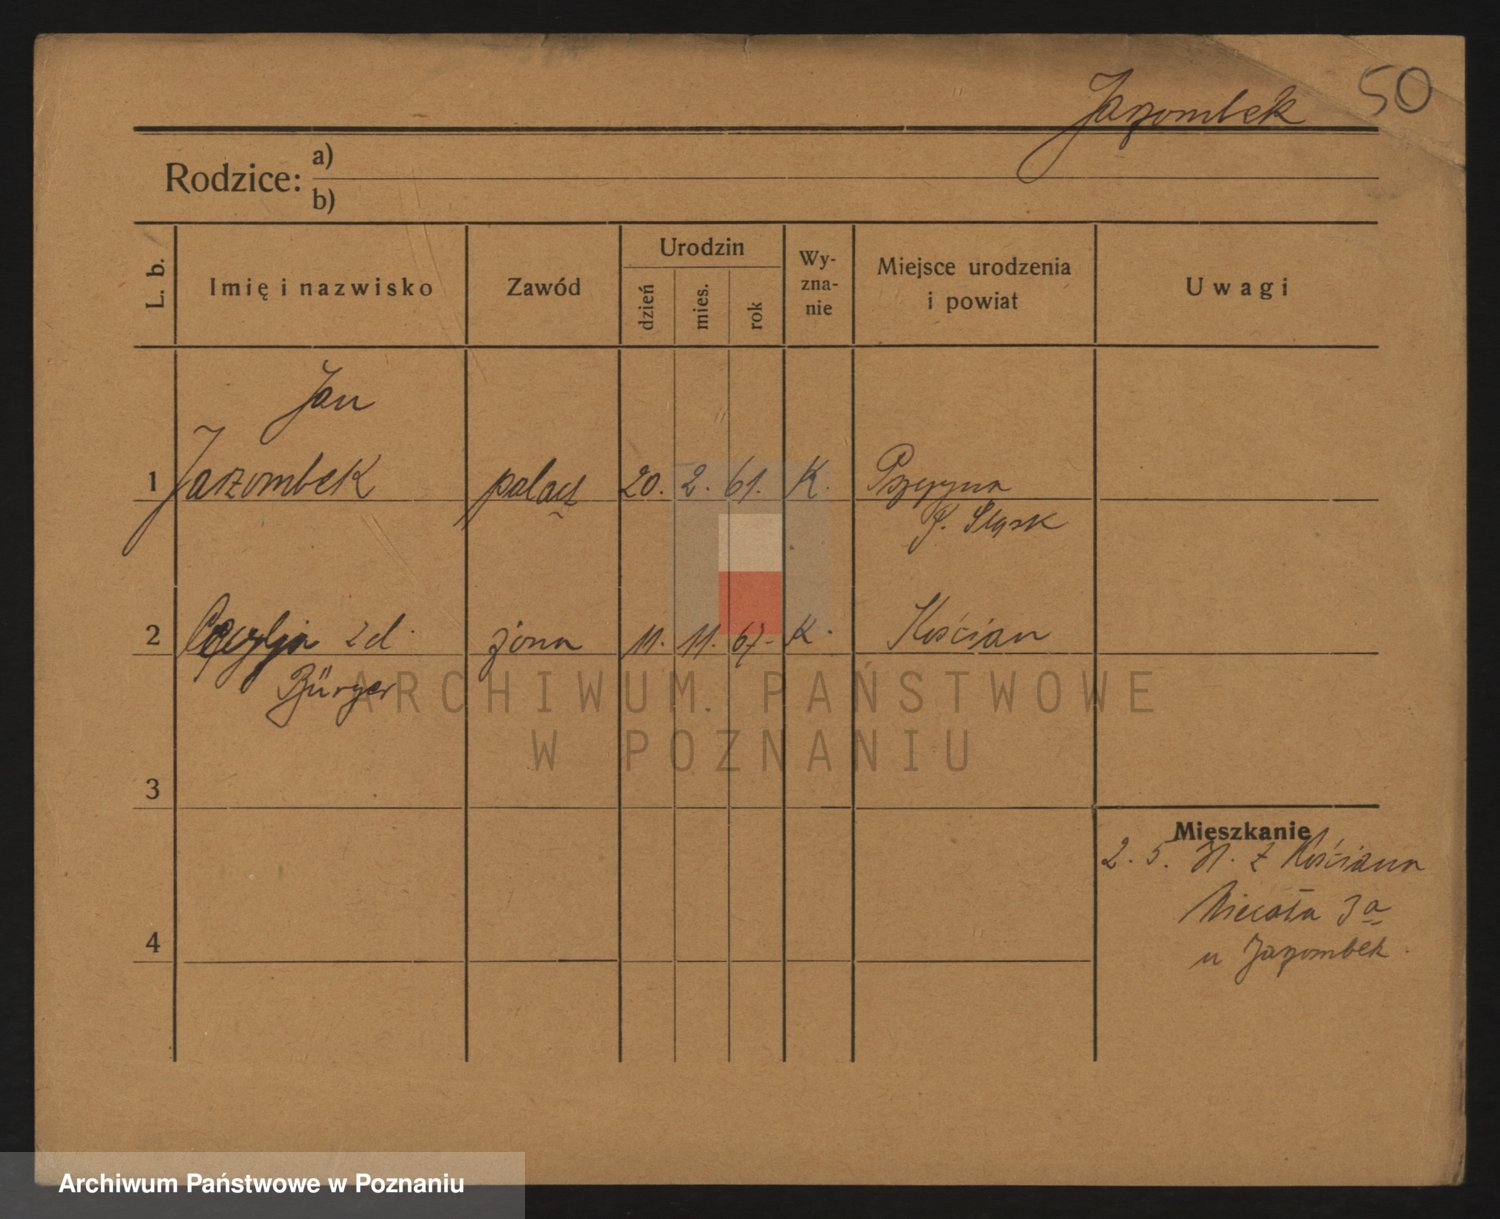 Jarzombek 50
Rodzice: a)
b)
L. b. Imię i nazwisko Zawód Urodzin dzień mies. rok Wy-
zna-
nie Miejsce urodzenia
i powiat Uwagi
Jan
1 Jarzombek palacz 20. 2. 61. K. Pszczyna
Śląsk
2 zd.
Bürger żona 11. 11. 67. K. Kościan
3
4
Mieszkanie
2. 5. z Kościana
3a
u Jarzombek.
ARCHIWUM PAŃSTWOWE
W POZNANIU
Archiwum Państwowe w Poznaniu